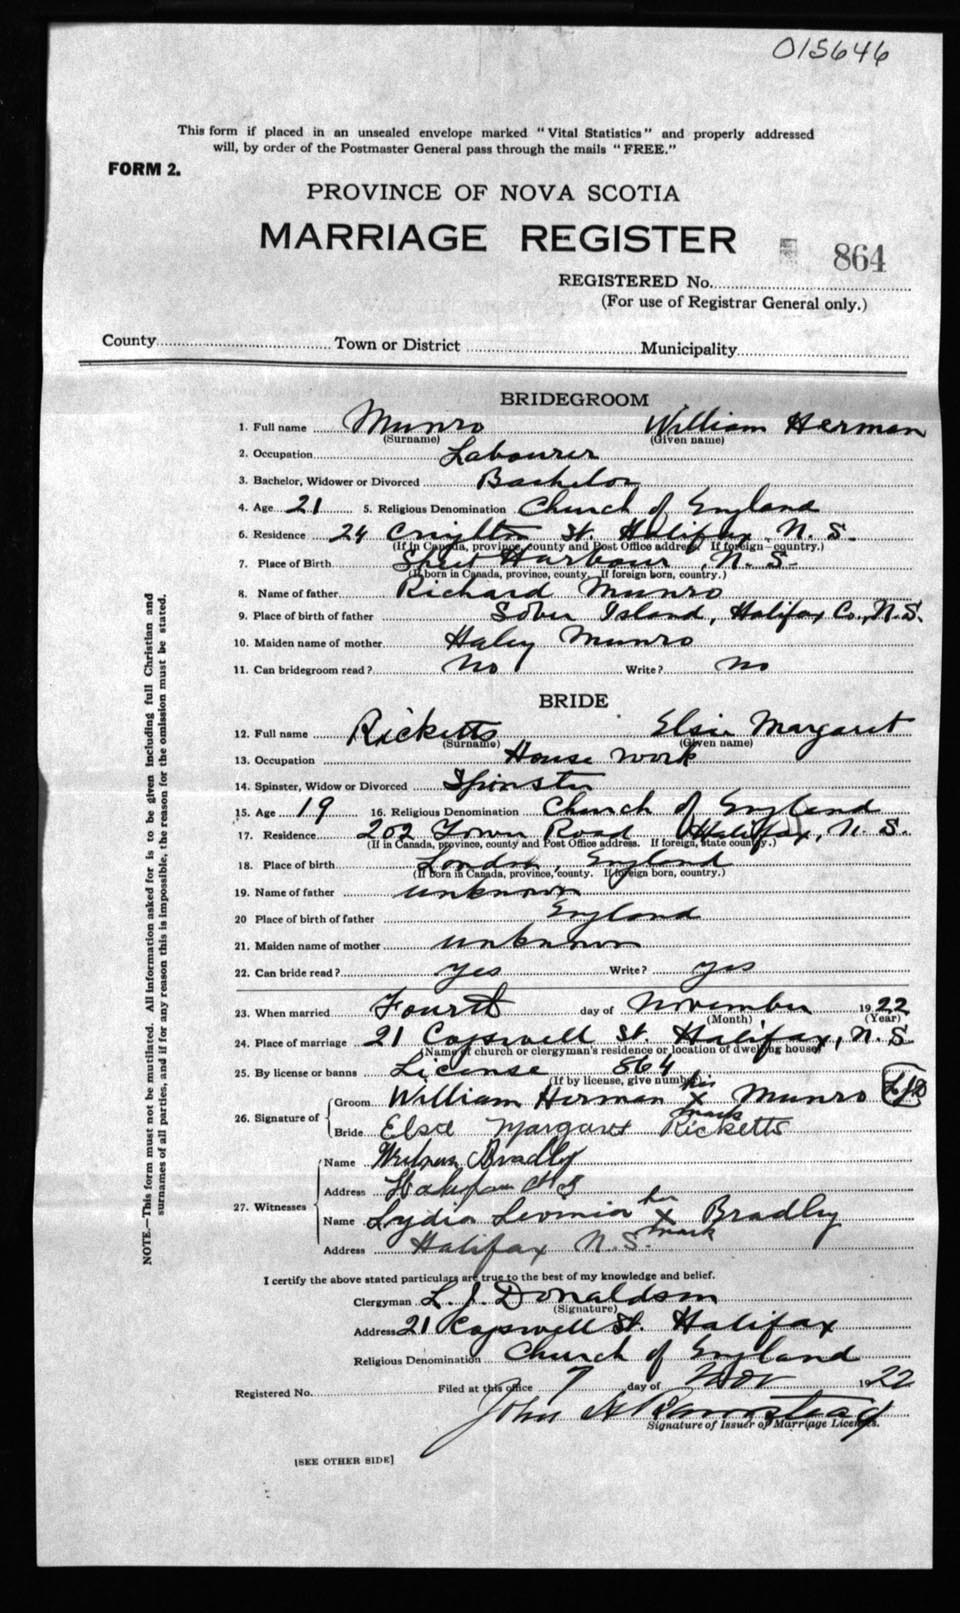 015646
This form if placed in an unsealed envelope marked "Vital Statistics" and properly addressed
will, by order of the Postmaster General pass through the mails "FREE."
FORM 2.
PROVINCE OF NOVA SCOTIA
MARRIAGE REGISTER
864
REGISTERED No.
(For use of Registrar General only.)
County Town or District Municipality
BRIDEGROOM
1. Full name Munro William Herman
(Surname) (Given name)
2. Occupation Labourer
3. Bachelor, Widower or Divorced Bachelor
4. Age 21 5. Religious Denomination Church of England
6. Residence 24 St. Halifax, N.S.
(If in Canada, province, county and Post Office address. If foreign—country.)
7. Place of Birth Sheet Harbour, N.S.
(If born in Canada, province, county. If foreign born, country.)
8. Name of father Richard Munro
9. Place of birth of father Sober Island, Halifax Co., N.S.
10. Maiden name of mother Haley Munro
11. Can bridegroom read? No Write? No
BRIDE
12. Full name Ricketts Elsie Margaret
(Surname) (Given name)
13. Occupation House work
14. Spinster, Widow or Divorced Spinster
15. Age 19 16. Religious Denomination Church of England
17. Residence 202 Tower Road Halifax, N.S.
(If in Canada, province, county and Post Office address. If foreign, state country.)
18. Place of birth London, England
(If born in Canada, province, county. If foreign born, country.)
19. Name of father unknown
20 Place of birth of father England
21. Maiden name of mother unknown
22. Can bride read? yes Write? yes
23. When married Fourth day of November 1922
(Month) (Year)
24. Place of marriage 21 Cogswell St. Halifax, N.S.
(Name of church or clergyman's residence or location of dwelling house)
25. By license or banns License 864
(If by license, give number)
26. Signature of
Groom William Herman his x mark Munro LJD
Bride Elsie Margaret Ricketts
27. Witnesses
Name Bradley
Address Halifax N S
Name Lydia her x mark Bradley
Address Halifax N.S.
I certify the above stated particulars are true to the best of my knowledge and belief.
Clergyman L. J. Donaldson
(Signature)
Address 21 Cogswell St. Halifax
Religious Denomination Church of England
Registered No. Filed at this office 7 day of Nov 1922
John
Signature of Issuer of Marriage Licenses.
[SEE OTHER SIDE]
NOTE.—This form must not be mutilated. All information asked for is to be given including full Christian and
surnames of all parties, and if for any reason this is impossible, the reason for the omission must be stated.